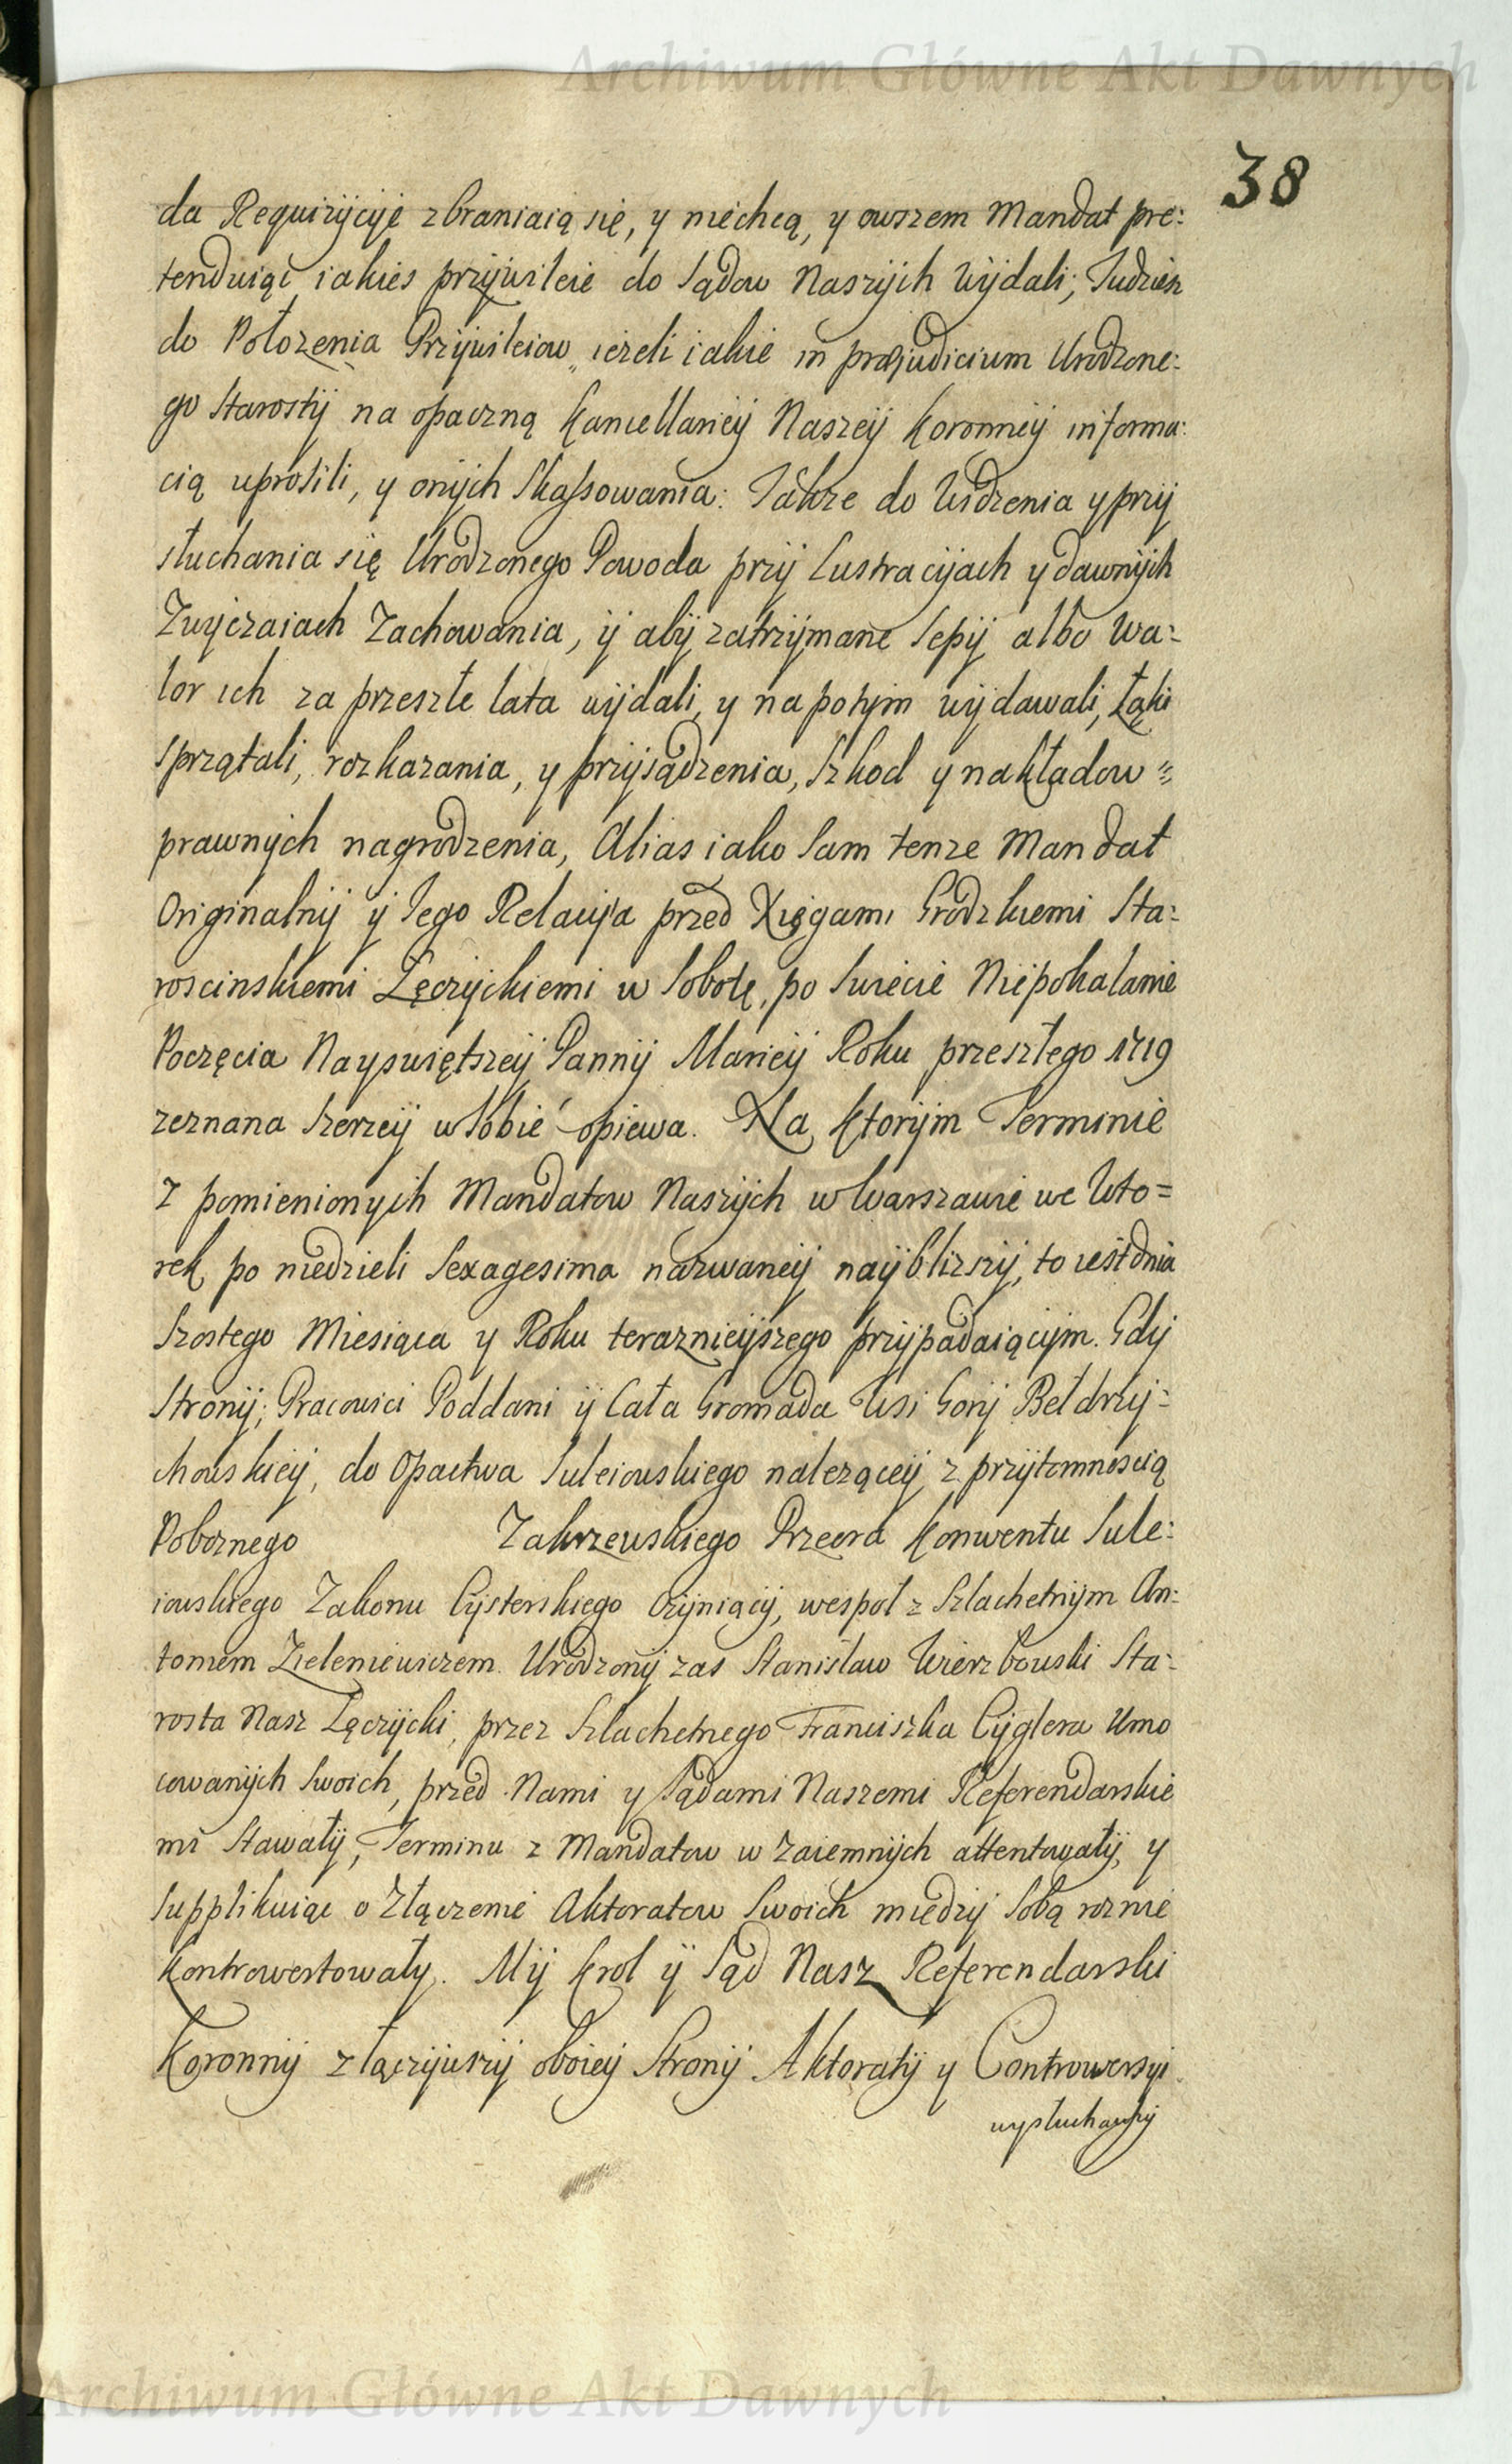 Archiwum Główne Akt Dawnych
38
da Requizijcije zbraniaią się, y niechcą, y owszem Mandat pre:
tenduiąc iakies przijwileie do Sądow Naszijch wijdali; Tudziesz
do Położenia Przijwileiow ieżeli iakie in præjudicium Urodzone:
go Starostij na opaczną Kancellarieij Naszeij Koronnieij informa:
cią uprosili, y onijch Skassowania: Także do Widzenia y przij
słuchania się Urodzonego Powoda przij Lustracijach y dawnijch
Zwijczaiach Zachowania, ij abij zatrzijmane Sepij albo wa:
lor ich za przeszłe lata wijdali, y na potijm wijdawali, Łąki
sprzątali, rozkazania, y przijsądzenia, Szkod y nakładow
prawnijch nagrodzenia, Alias iako Sam tenze Mandat
Originalnij ij Iego Relacija przed Xięgami Grodzkiemi Sta:
roscinskiemi Łęczijckiemi w Sobotę, po Swiecie Niepokalanie
Poczęcia Nayswiętszeij Pannij Marieij Roku przeszłego 1719
zeznana Szerzeij w Sobie opiewa. Na ktorijm Terminie
z pomienionijch Mandatow Naszijch w Warszawie we Wto=
rek po niedzieli Sexagesima nazwaneij naijblizszij, to iest dnia
Szostego Miesiąca y Roku teraznieijszego przijpadaiącijm. Gdij
Stronij; Pracowici Poddani ij Cała Gromada Wsi Gorij Bełdrzij=
chowskieij, do Opactwa Suleiowskiego nalezącei z przijtomnoscią
Poboznego Zakrzewskiego Przeora Konwentu Sule:
iowskiego Zakonu Cijsterskiego Czijniącij, wespoł z Szlachetnijm An:
toniem Zieleniewiczem. Urodzonij zas Stanisław Wierzbowski Sta:
rosta Nasz Łęczijcki, przez Szlachetnego Franciszka Cijglera Umo
cowanijch Swoich, przed Nami y Sądami Naszemi Referendarskie
mi Stawałij, Terminu z Mandatow w Zaiemnijch attentowałij, y
Supplikuiąc o Złączenie Aktoratow Swoich miedzij Sobą roznie
Kontrowertowały. Mij Krol ij Sąd Nasz Referendarski
Koronnij złączijwszij oboieij Stronij Aktoratij y Controwersyi
wysłuchawszij
Archiwum Główne Akt Dawnych